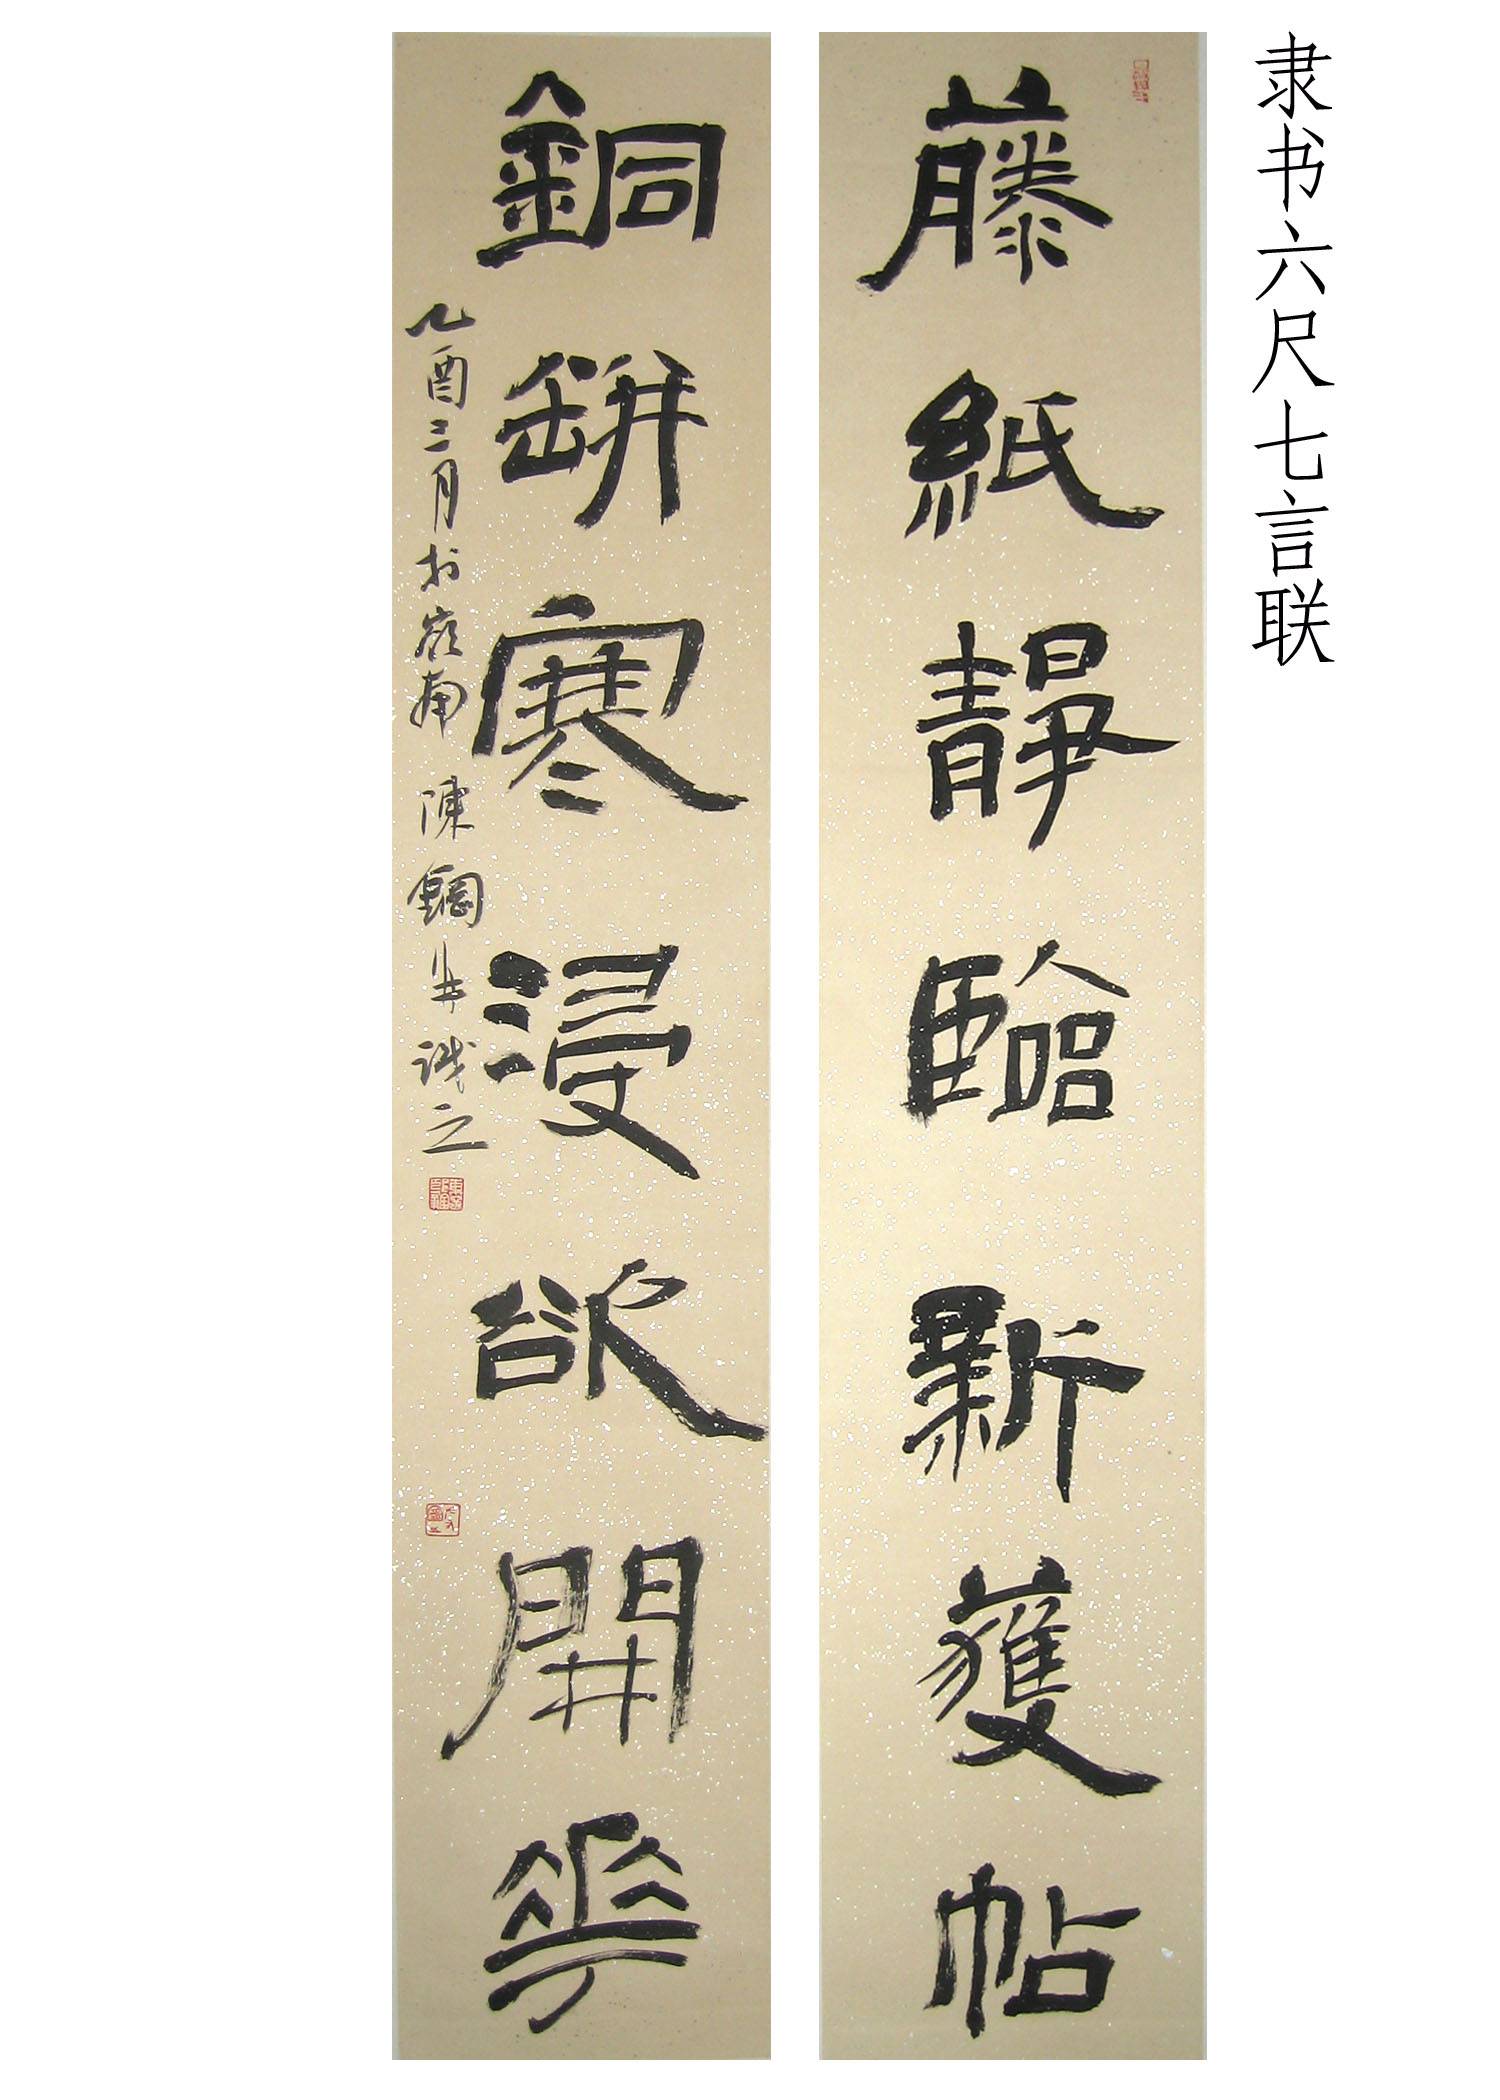 隶书六尺七言联
藤紙靜臨新獲帖
銅缾寒浸欲開花
乙酉三月於嶺南 陳鋼 并識之